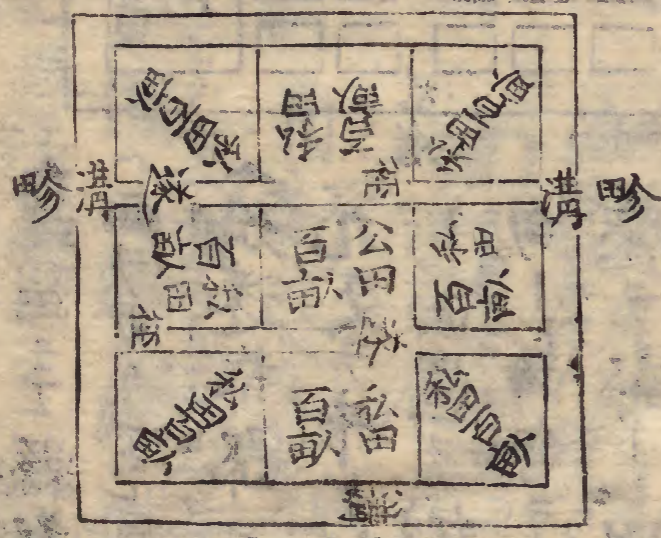 私田百畝
私田百畝
私田百畝
徑
遂
溝
畛
溝
畛
私田百畝
公田百畝
私田百畝
遂
徑
私田百畝
私田百畝
私田百畝
溝